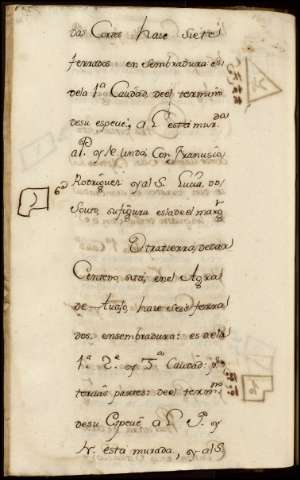 das Cortes hace siete
ferrados en Sembradura es
dela 1ª Caudad, deel termino
desu especie, a L esta mur.da
al P. oy le linda Con Franusio
Rodriguez oy al S. Lucia do
Souto, su figura es la deel marg.
Otra tierra, de dar
Centeno, sita, en el Agra
de hace Seis ferra
dos, ensembradura: es dela
1ª 2ª oy 3ª Caudad: por
tercias partes: deel term.no
desu Especie a L P. oy
N. esta murada, oy al S.
6ª